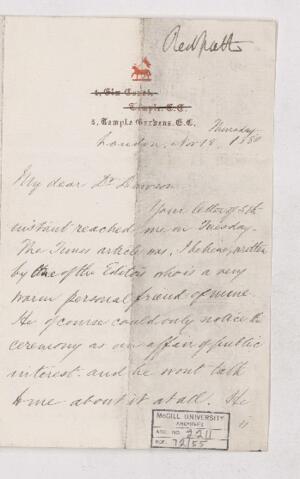 Redpath
4, Elm Court,
Temple. E.C.
5, Temple Gardens. E.C.
Thursday
London, Nov 18, 1880
My dear Dr Dawson
Your letter of 5th
instant reached me on Tuesday.
The Times article was, I believe, written
by one of the Editors who is a very
warm personal friend of mine.
He of course could only notice the
ceremony as an affair of public
interest. and he wont talk
to me about it at all. He
McGILL UNIVERSITY
ARCHIVES
ACC. NO. 2211
REF. 72/55
"